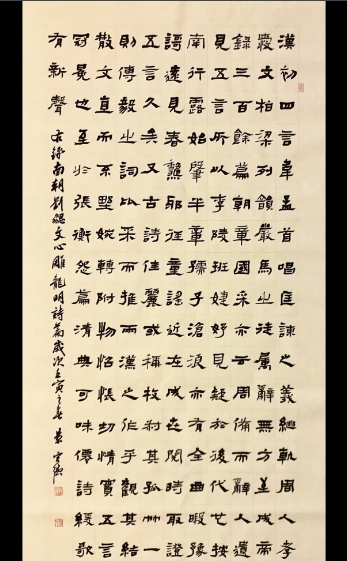 漢初四言韋孟首唱匡諫之義繼軌周人孝
愛文柏梁列韻嚴馬之徒屬辭無方至成帝
錄三百餘篇朝章國采亦云周備而辭人遺
見五言所以李陵班婕妤見疑於後代也按
南行露始肇半章孺子滄浪亦有全曲暇豫
謌遠見春秋邪徑童謠近在成世閱時取證
五言久矣又古詩佳麗或稱枚叔其孤竹一
則傅毅之詞比采而推兩漢之作乎觀其結
散文直而不野婉轉附物怊悵切情實五言
冠冕也至於張衡怨篇清典可味僊詩緩歌
有新聲
右錄南朝劉勰文心雕龍明詩篇歲次壬寅之春